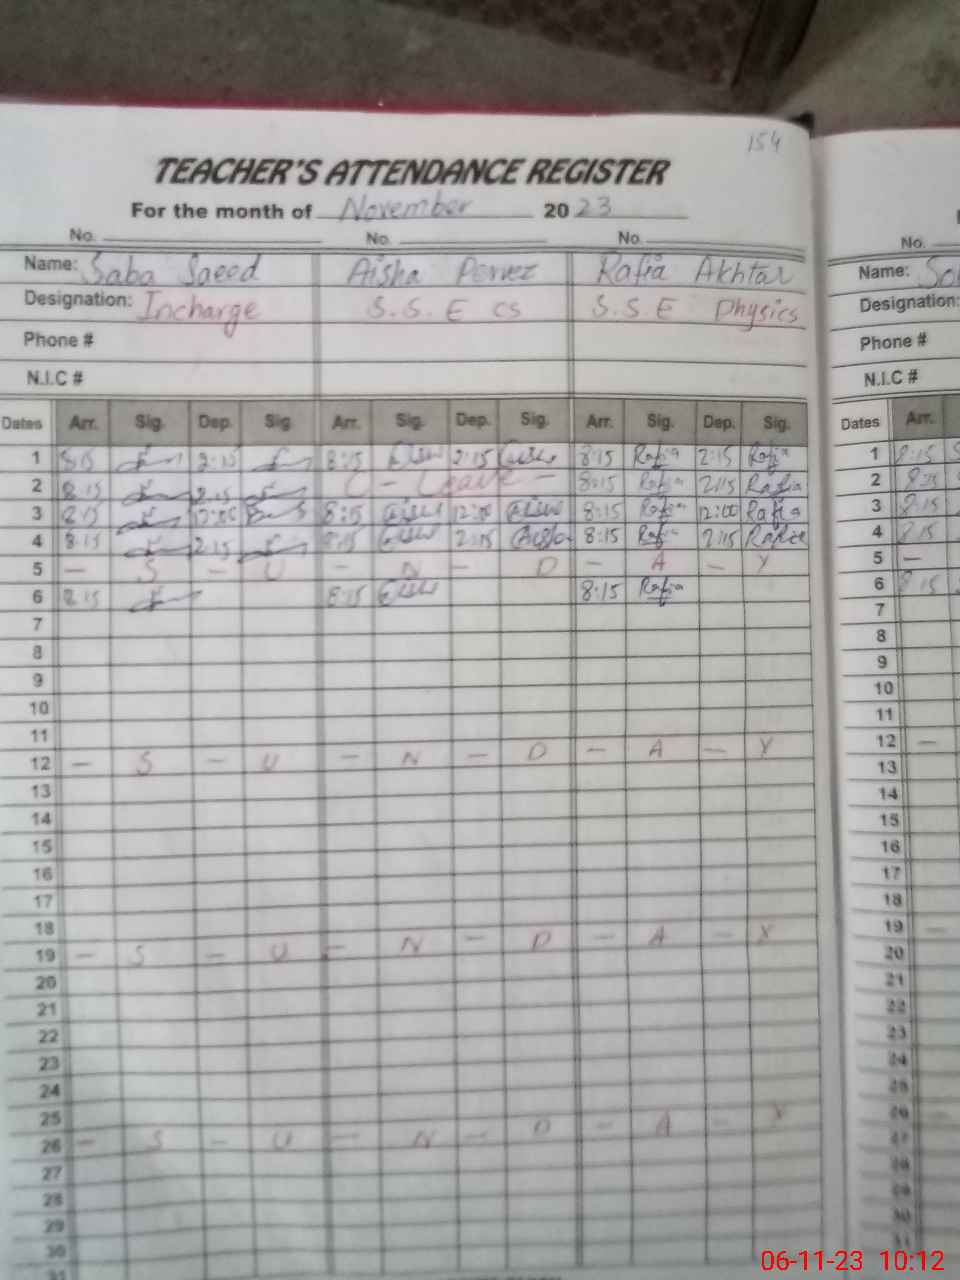 154
TEACHER'S ATTENDANCE REGISTER
For the month of November 2023
No. No. No.
Name: Saba Saeed Aisha Pervez Rafia Akhtar
Designation: Incharge S.S.E CS S.S.E Physics
Phone #
N.I.C #
Dates Arr. Sig. Dep. Sig. Arr. Sig. Dep. Sig. Arr. Sig. Dep. Sig.
1 8:15 2:15 8:15 2:15 8:15 Rafia 2:15 Rafia
2 8:15 2:15 C - Leave - 8:15 Rafia 2:15 Rafia
3 8:15 12:00 8:15 12:00 8:15 Rafia 12:00 Rafia
4 8:15 2:15 8:15 2:15 8:15 Rafia 2:15 Rafia
5 - S - U - N - D - A - Y
6 8:15 8:15 8:15 Rafia
7
8
9
10
11
12 - S - U - N - D - A - Y
13
14
15
16
17
18
19 - S - U - N - D - A - Y
20
21
22
23
24
25
26 - S - U - N - D - A - Y
27
28
29
30
31
No.
Name:
Designation:
Phone #
N.I.C #
Dates Arr.
1 8:15
2 8:15
3 8:15
4 8:15
5 -
6 8:15
7
8
9
10
11
12 -
13
14
15
16
17
18
19 -
20
21
22
23
24
25
26 -
27
28
29
30
31
06-11-23 10:12